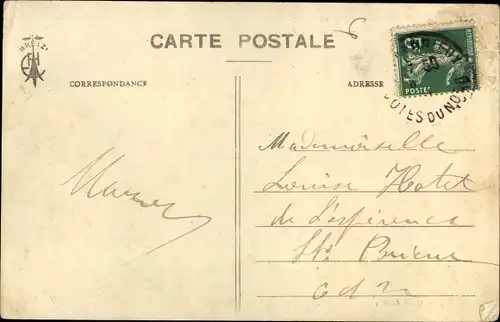 BREIZ
CARTE POSTALE
CORRESPONDANCE
ADRESSE
POSTES
COTES DU NORD
Mademoiselle
Louise Hotel
de L'espérence
St Brieuc
cdn